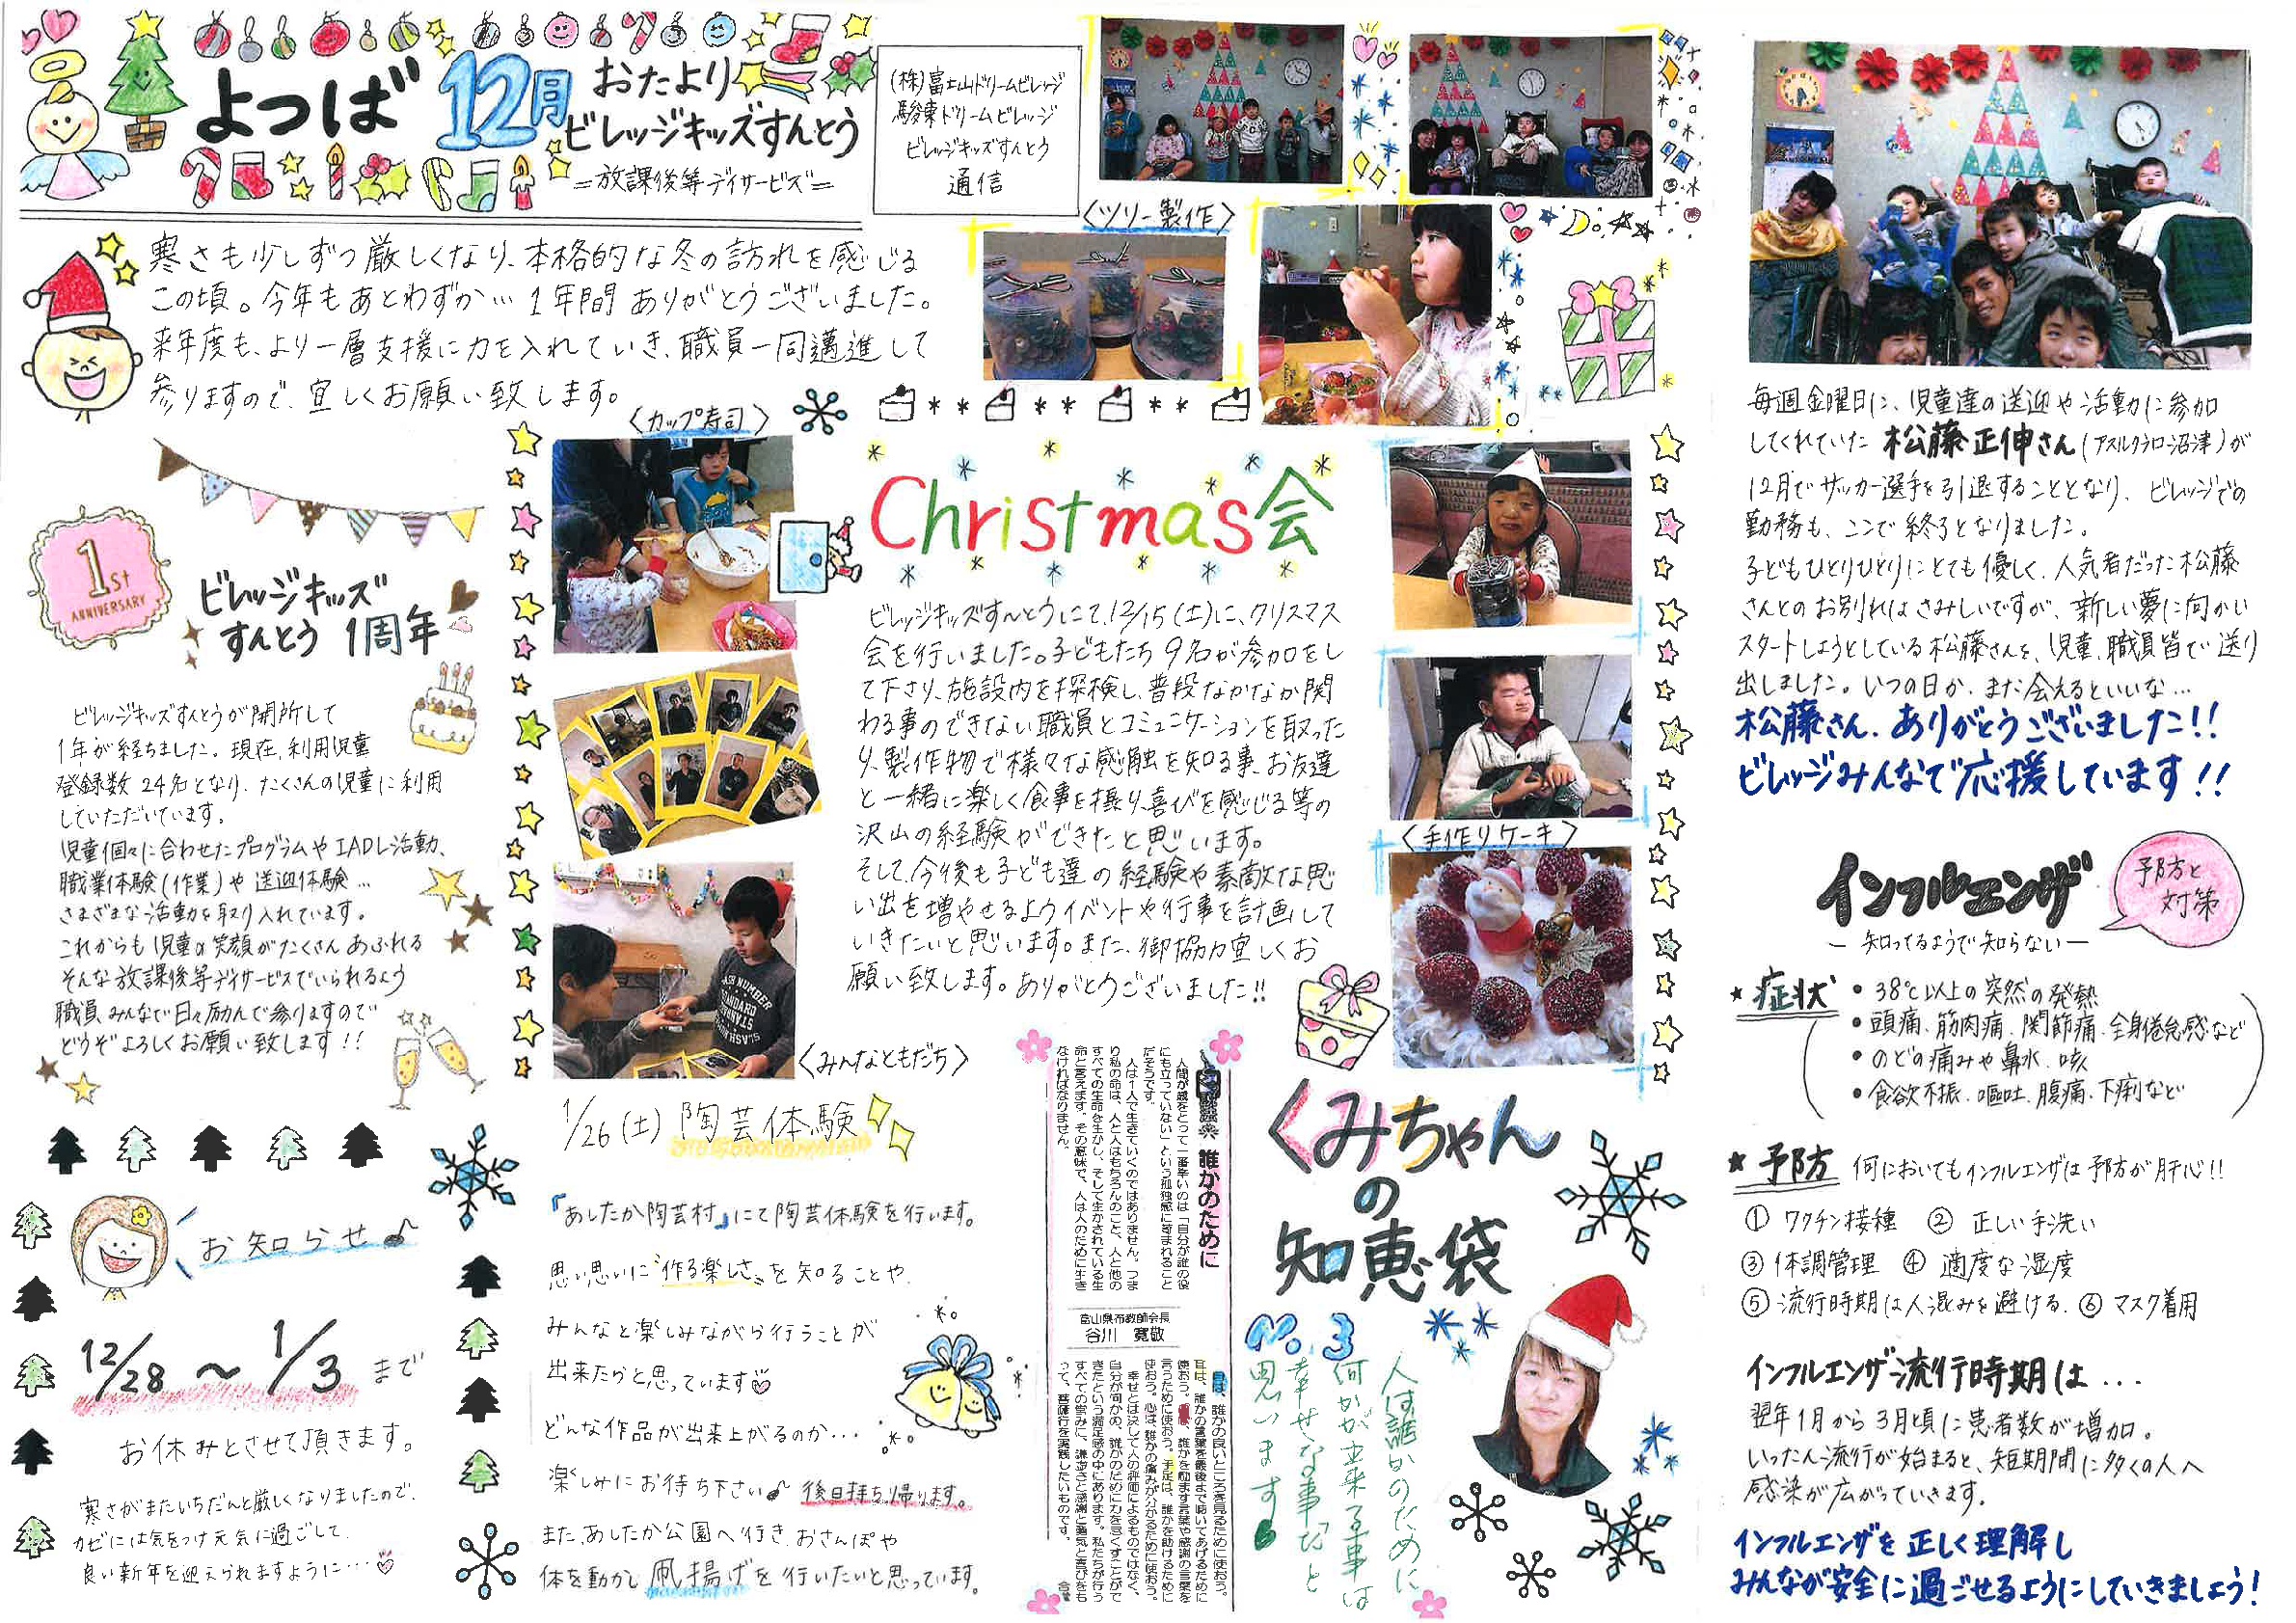 よつば
12月
おたより
ビレッジキッズすんとう
=放課後等デイサービス=
(株)富士山ドリームビレッジ
駿東ドリームビレッジ
ビレッジキッズすんとう
通信
寒さも少しずつ厳しくなり、本格的な冬の訪れを感じる
この頃。今年もあとわずか…1年間ありがとうございました。
来年度も、より一層支援に力を入れていき、職員一同邁進して
参りますので、宜しくお願い致します。
1st
ANNIVERSARY
ビレッジキッズ
すんとう 1周年
ビレッジキッズすんとうが開所して
1年が経ちました。現在、利用児童
登録数24名となり、たくさんの児童に利用
していただいています。
児童個々に合わせたプログラムやIADL活動、
職業体験(作業)や送迎体験…
さまざまな活動を取り入れています。
これからも児童の笑顔がたくさんあふれる
そんな放課後等デイサービスでいられるよう
職員みんなで日々励んで参りますので
どうぞよろしくお願い致します!!
お知らせ♪
12/28 〜 1/3 まで
お休みとさせて頂きます。
寒さがまたいちだんと厳しくなりましたので、
カゼには気をつけ元気に過ごして、
良い新年を迎えられますように…♡
〈カップ寿司〉
〈みんなともだち〉
〈ツリー製作〉
〈手作りケーキ〉
Christmas会
ビレッジキッズすんとうにて、12/15(土)に、クリスマス
会を行いました。子どもたち9名が参加をし
て下さり、施設内を探検し、普段なかなか関
わる事のできない職員とコミュニケーションを取った
り、製作物で様々な感触を知る事、お友達
と一緒に楽しく食事を摂り、喜びを感じる等の
沢山の経験ができたと思います。
そして、今後も子ども達の経験や素敵な思
い出を増やせるようイベントや行事を計画して
いきたいと思います。また、御協力宜しくお
願い致します。ありがとうございました!!
1/26(土) 陶芸体験
『あしたか陶芸村』にて陶芸体験を行います。
思い思いに“作る楽しさ”を知ることや、
みんなと楽しみながら行うことが
出来たらと思っています♡
どんな作品が出来上がるのか…
楽しみにお待ち下さい♪ 後日持ち帰ります。
また、あしたか公園へ行き、おさんぽや
体を動かし凧揚げを行いたいと思っています。
誰かのために
人間が歳をとって一番辛いのは「自分が誰の役
にも立っていない」という孤独感に苛まれること
だそうです。
人は1人で生きていくのではありません。つま
り私の命は、人と人はもちろんのこと、人と他の
すべての生命を生かし、そして生かされている生
命と言えます。その意味で、人は人のために生き
なければなりません。
富山県布教師会長
谷川 寛敬
目は、誰かの良いところを見るために使おう。
耳は、誰かの言葉を最後まで聴いてあげるために
使おう。口は、誰かを励ます言葉や感謝の言葉を
言うために使おう。手足は、誰かを助けるために
使おう。心は、誰かの痛みが分かるために使おう。
幸せとは決して人の評価によるものではなく、
自分が何かの、誰かのために力を尽くすことがで
きたという満足感の中にあります。私たちが行う
すべての営みに、謙虚さと感謝と勇気と喜びをも
って、菩薩行を実践したいものです。 合掌
くみちゃん
の
知恵袋
No.3
人は誰かのために
何かが出来る事は
幸せな事だと
思います
毎週金曜日に、児童達の送迎や活動に参加
してくれていた 松藤正伸さん(アスルクラロ沼津)が
12月でサッカー選手を引退することとなり、ビレッジでの
勤務も、ここで終了となりました。
子どもひとりひとりにとても優しく、人気者だった松藤
さんとのお別れはさみしいですが、新しい夢に向かい
スタートしようとしている松藤さんを、児童、職員皆で送り
出しました。いつの日か、また会えるといいな…
松藤さん、ありがとうございました!!
ビレッジみんなで応援しています!!
インフルエンザ
予防と
対策
ー知ってるようで知らないー
★症状
・38℃以上の突然の発熱
・頭痛、筋肉痛、関節痛、全身倦怠感など
・のどの痛みや鼻水、咳
・食欲不振、嘔吐、腹痛、下痢など
★予防 何においてもインフルエンザは予防が肝心!!
① ワクチン接種 ② 正しい手洗い
③ 体調管理 ④ 適度な湿度
⑤ 流行時期は人混みを避ける、⑥ マスク着用
インフルエンザ流行時期は…
翌年1月から3月頃に患者数が増加。
いったん流行が始まると、短期間に多くの人へ
感染が広がっていきます。
インフルエンザを正しく理解し
みんなが安全に過ごせるようにしていきましょう!